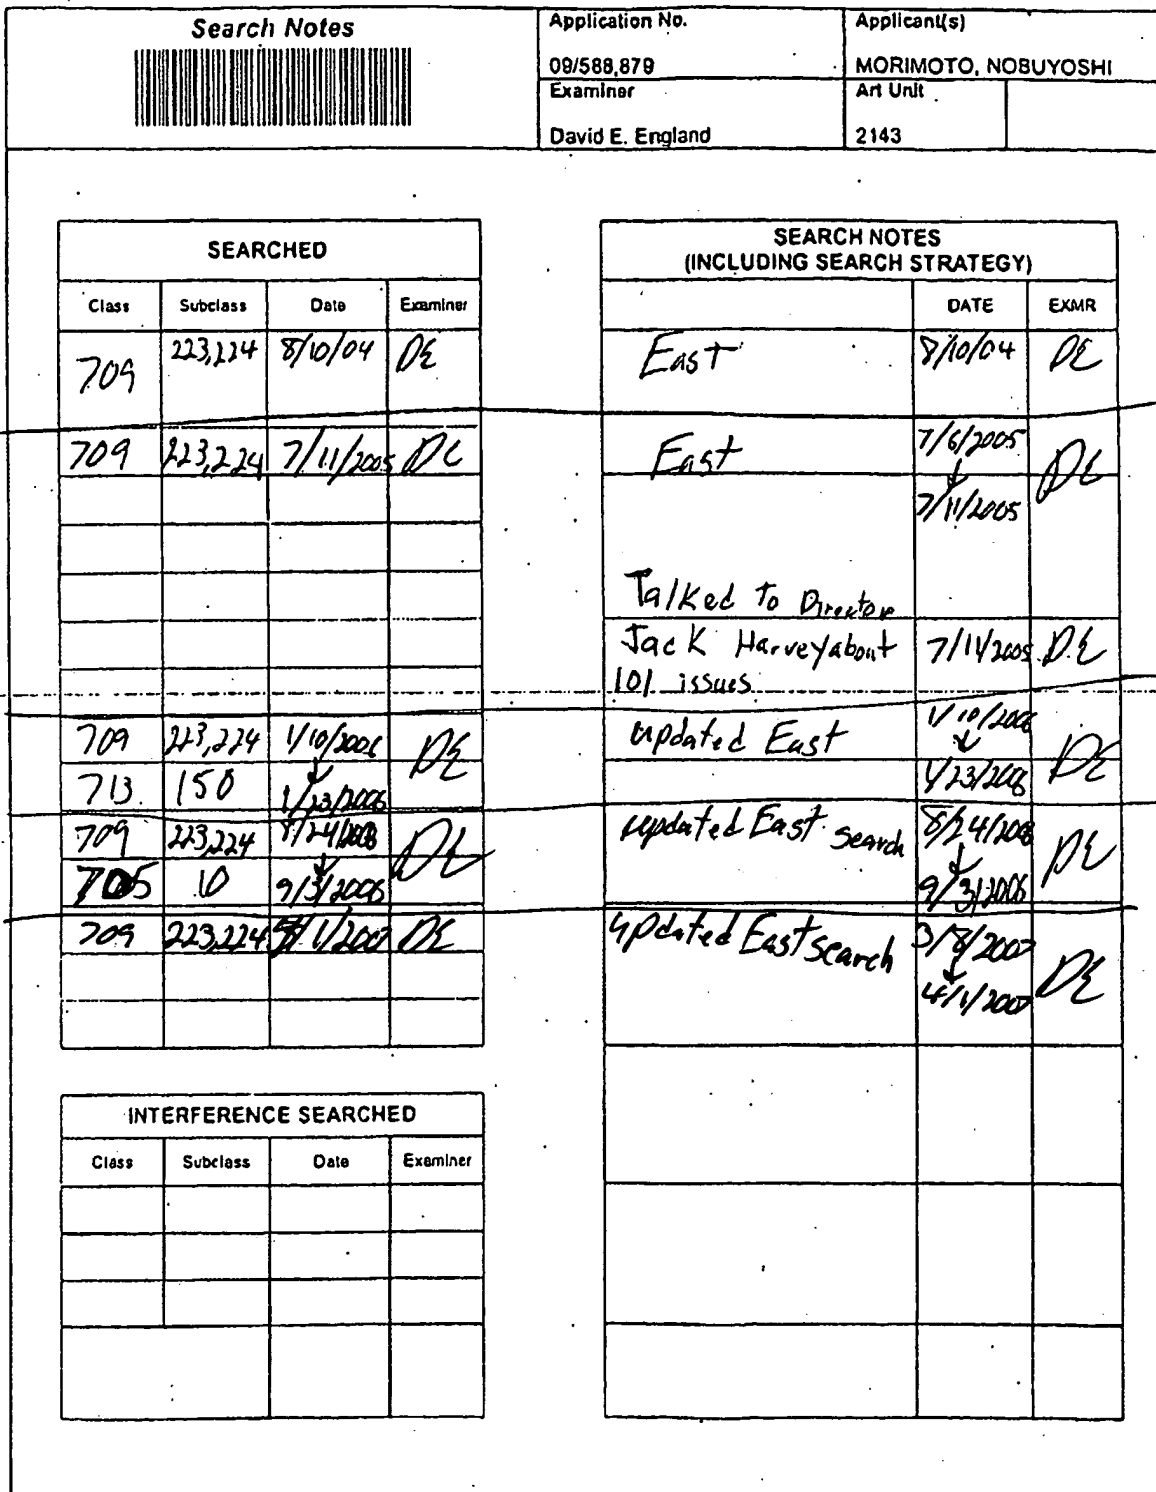 Search Notes
Application No.
09/588,879
Applicant(s)
MORIMOTO, NOBUYOSHI
Examiner
David E. England
Art Unit
2143
SEARCHED
Class Subclass Date Examiner
709 223,224 8/10/04 DE
709 223,224 7/11/2005 DE
709 223,224 1/10/2006 DE
713 150 1/23/2006
709 223,224 8/24/2006 DE
705 10 9/3/2006
709 223,224 /1/2007 DE
INTERFERENCE SEARCHED
Class Subclass Date Examiner
SEARCH NOTES
(INCLUDING SEARCH STRATEGY)
DATE EXMR
East 8/10/04 DE
East 7/6/2005 DE
7/11/2005
Talked to Director
Jack Harvey about 7/11/2005 DE
101 issues
updated East 1/10/2006 DE
1/23/2006
updated East search 8/24/2006 DE
9/3/2006
updated East search 3/8/2007 DE
4/1/2007